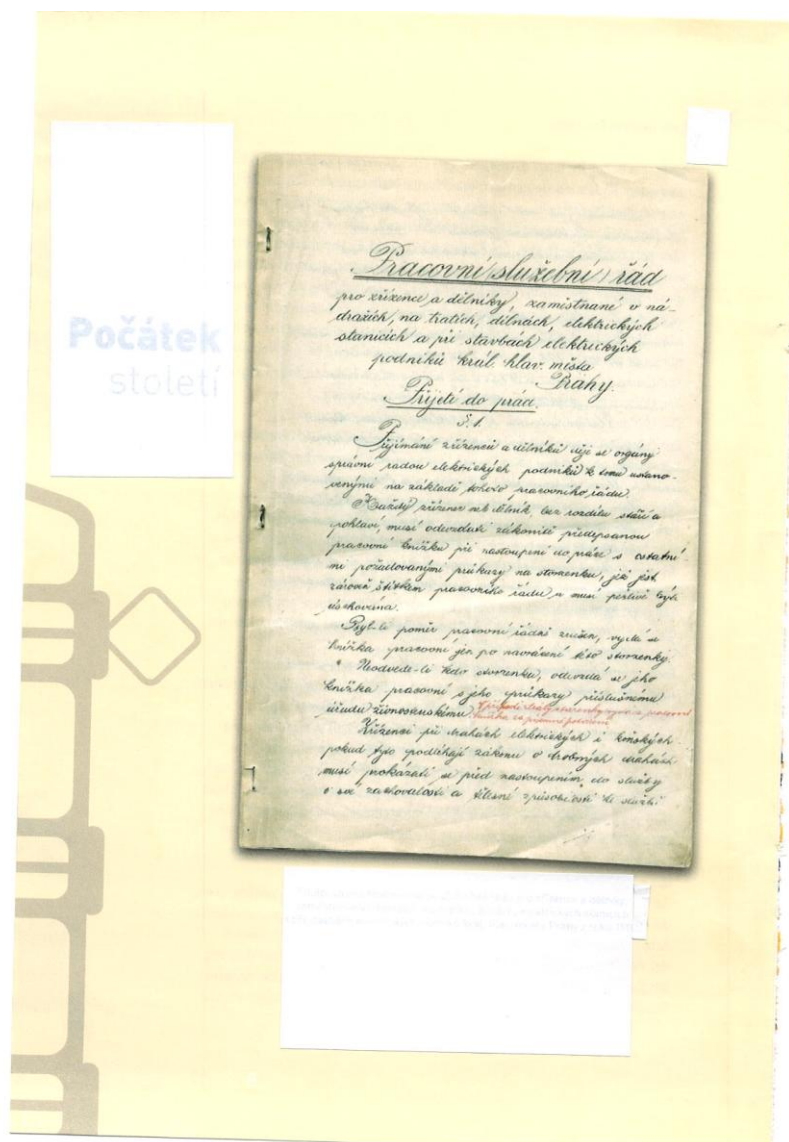 Počátek
století
Pracovní (služební) řád
pro zřízence a dělníky, zaměstnané v ná-
dražích, na tratích, dílnách, elektrických
stanicích a při stavbách elektrických
podniků král. hlav. města
Prahy.
Přijetí do práce.
§. 1.
Přijímání zřízenců a dělníků děje se orgány
správní radou elektrických podniků k tomu ustano-
venými na základě tohoto pracovního řádu.
Každý zřízenec neb dělník, bez rozdílu stáří a
pohlaví, musí odevzdati zákonitě předepsanou
pracovní knížku při nastoupení do práce s ostatní-
mi požadovanými průkazy na stvrzenku, jež jest
zároveň štítkem pracovního řádu a musí pečlivě býti
uschována.
Byl-li poměr pracovní řádně zrušen, vydá se
knížka pracovní jen po navrácení této stvrzenky.
Neodvede-li kdo stvrzenku, odevzdá se jeho
knížka pracovní s jeho průkazy příslušnému
úřadu živnostenskému.
Zřízenci při drahách elektrických i koňských
pokud tyto podléhají zákonu o drobných drahách
musí prokázati se před nastoupením do služby
o své zachovalosti a tělesné způsobilosti ke službě